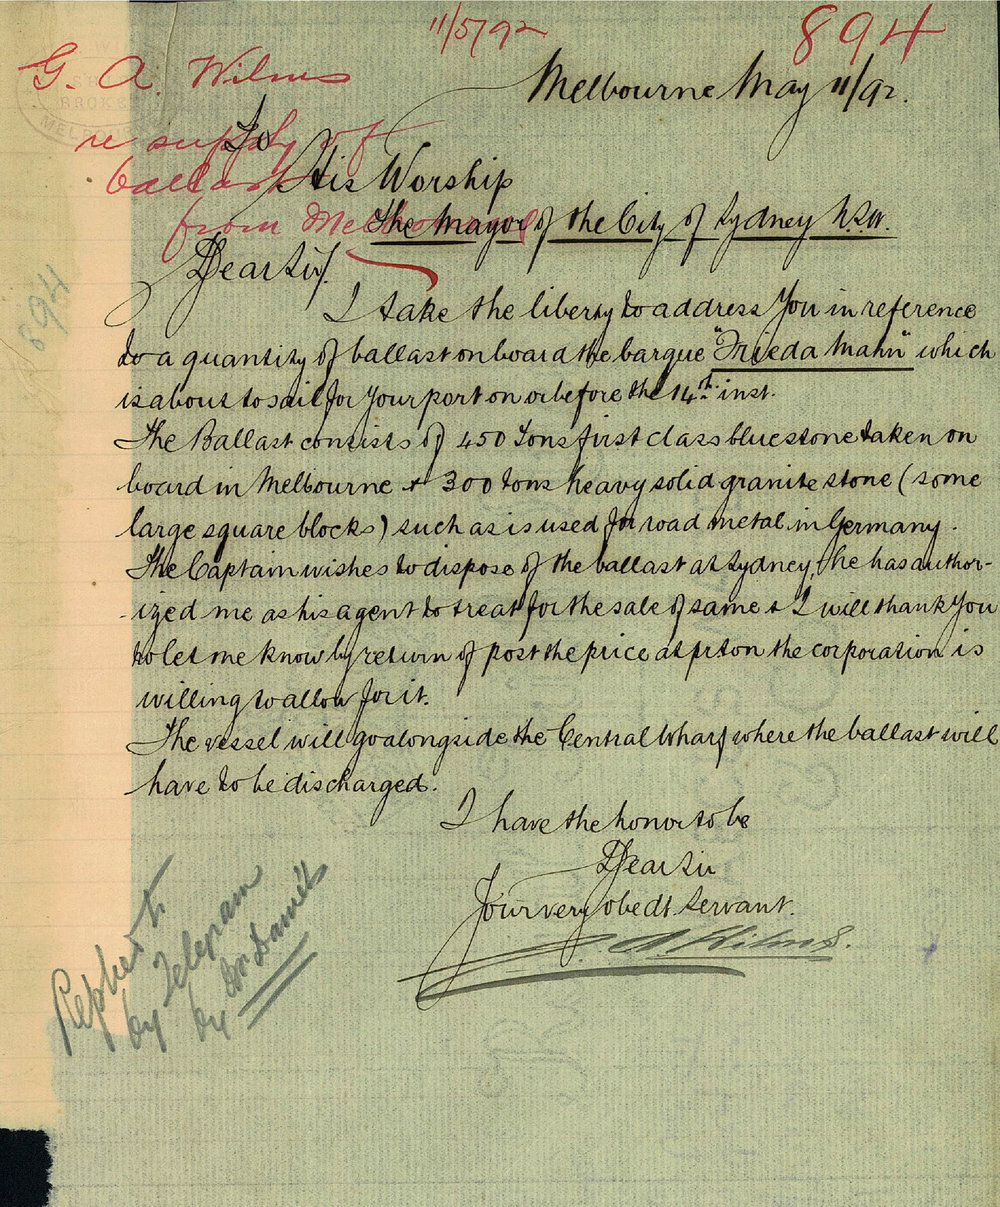 11/5/92
894
G. A. Wilms
re supply of
ballast
from Melbourne
Melbourne May 11/92.
To
His Worship
The Mayor of the City of Sydney N.S.W.
Dear Sir/.
I take the liberty to address You in reference
to a quantity of ballast on board the barque "Frieda Mahn" which
is about to sail for Your port on or before the 14th inst.
The Ballast consists of 450 Tons first class bluestone taken on
board in Melbourne & 300 tons heavy solid granite stone (some
large square blocks) such as is used for road metal in Germany.
The Captain wishes to dispose of the ballast at Sydney, he has author-
-ized me as his agent to treat for the sale of same & I will thank You
to let me know by return of post the price at pr ton the corporation is
willing to allow for it.
The vessel will go alongside the Central Wharf where the ballast will
have to be discharged.
I have the honor to be
Dear Sir
Your very obedt. Servant.
G. A. Wilms.
Replied to
by Telegram
by Mr
894
MELB